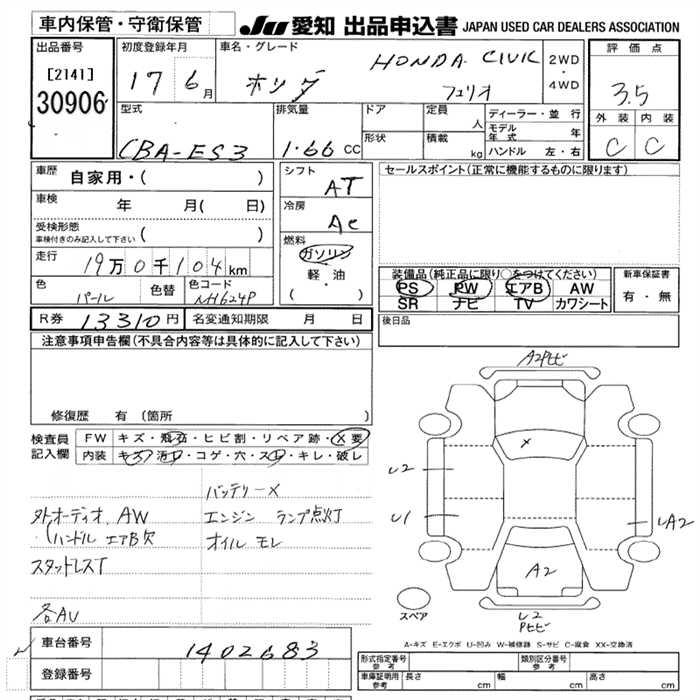 車内保管・守衛保管
JU 愛知 出品申込書 JAPAN USED CAR DEALERS ASSOCIATION
出品番号
[2141]
30906
初度登録年月
17 6月
車名・グレード
HONDA CIVIC
ホンダ フェリオ
2WD
・
4WD
評価点
3.5
外装 内装
C C
型式
CBA-ES3
排気量
1.66 CC
ドア
形状
定員 人
積載 kg
ディーラー・並行
モデル年式 年
ハンドル 左・右
車歴
自家用・( )
車検 年 月( 日)
受検形態
車検付きのみ記入して下さい ( )
走行 19万0千104km
色 パール 色替 色コード NH624P
シフト
AT
冷房
AC
燃料
ガソリン
軽・油
( ・ )
セールスポイント(正常に機能するものに限ります)
装備品(純正品に限り○をつけてください)
PS PW エアB AW
SR ナビ TV カワシート
新車保証書
有・無
R券 13310円 名変通知期限 月 日
後日品
注意事項申告欄(不具合内容等は具体的に記入して下さい)
修復歴 有(箇所 )
検査員
記入欄
FW キズ・飛石・ヒビ割・リペア跡・X要
内装 キズ・汚レ・コゲ・穴・スレ・キレ・破レ
バッテリーX
外オーディオ、AW エンジン ランプ点灯
・(ハンドル エアB欠 オイル モレ
スタッドレスT
各AU
A2Pヒビ
X
U2
U1
UA2
A2
スペア
U2
Pヒビ
A-キズ E-エクボ U-凹み W-補修跡 S-サビ C-腐食 XX-交換済
車台番号 1402683
登録番号
形式指定番号
参考
類別区分番号
参考
車庫証明用
参考
長さ cm 幅 cm 高さ cm